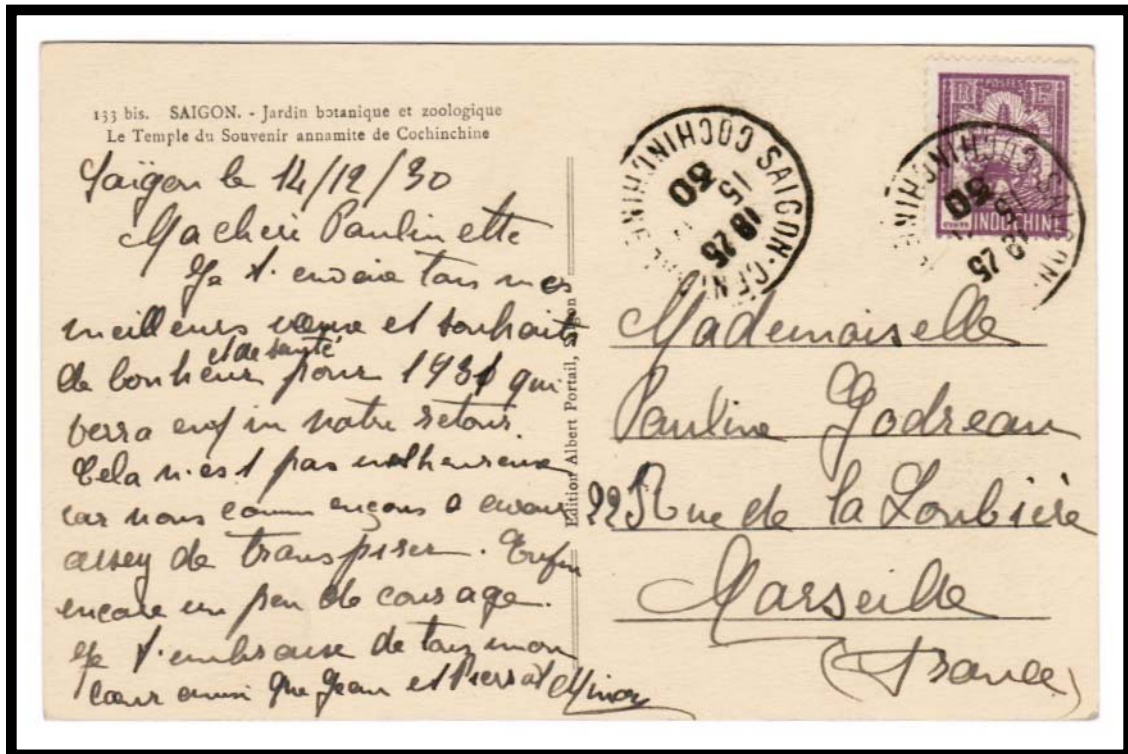 133 bis. SAIGON. - Jardin botanique et zoologique
Le Temple du Souvenir annamite de Cochinchine
Saïgon le 14/12/30
Ma cheri Paulinette
Je t'envoie tous mes
meilleurs vœux et souhait
de bonheur et de santé pour 1931 qui
verra enfin notre retour.
Cela n'est pas malheureux
car nous commençons a avoir
assez de transpirer. Enfin
encore un peu de courage.
Je t'embrasse de tout mon
cœur ainsi que Jean et Pierrot
Edition Albert Portail, Saigon
SAIGON-CENTRAL COCHINCHINE
15
18 25
30
POSTES
INDOCHINE
SAIGON COCHINCHINE
15
18 25
30
Mademoiselle
Pauline Godreau
22 Rue de la Loubière
Marseille
(France)